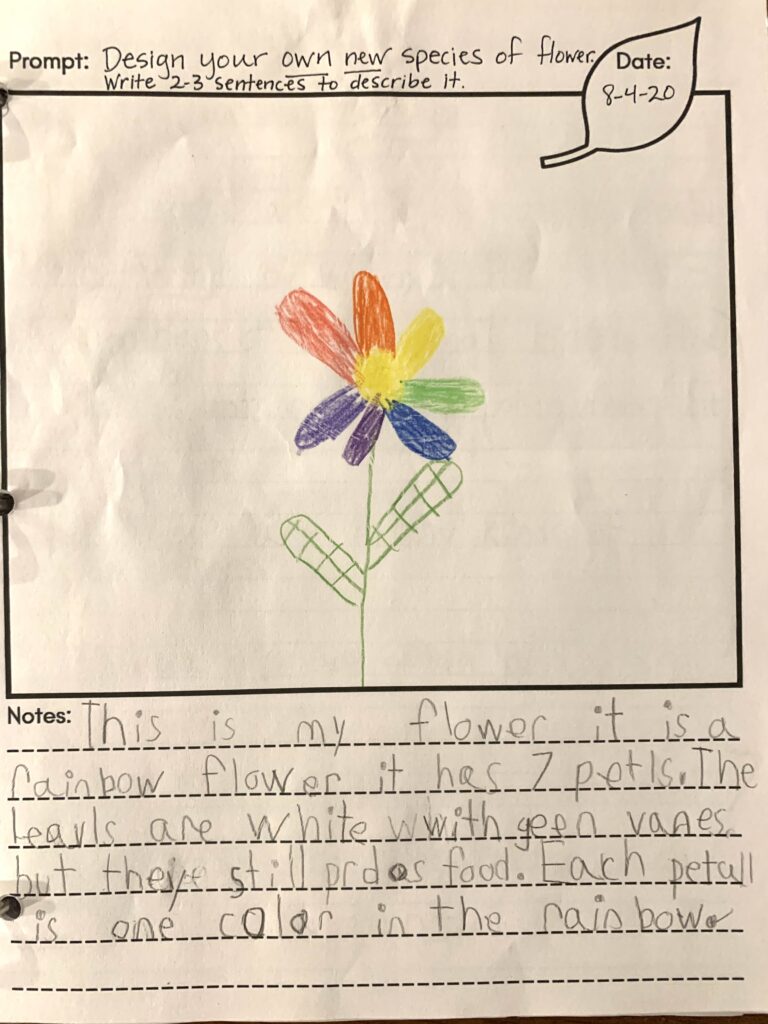 Prompt: Design your own new species of flower.
Write 2-3 sentences to describe it.
Date:
8-4-20
Notes: This is my flower it is a
rainbow flower it has 7 petls. The
leavls are white wwith geen vanes
but theiye still prdos food. Each petall
is one color in the rainbow.